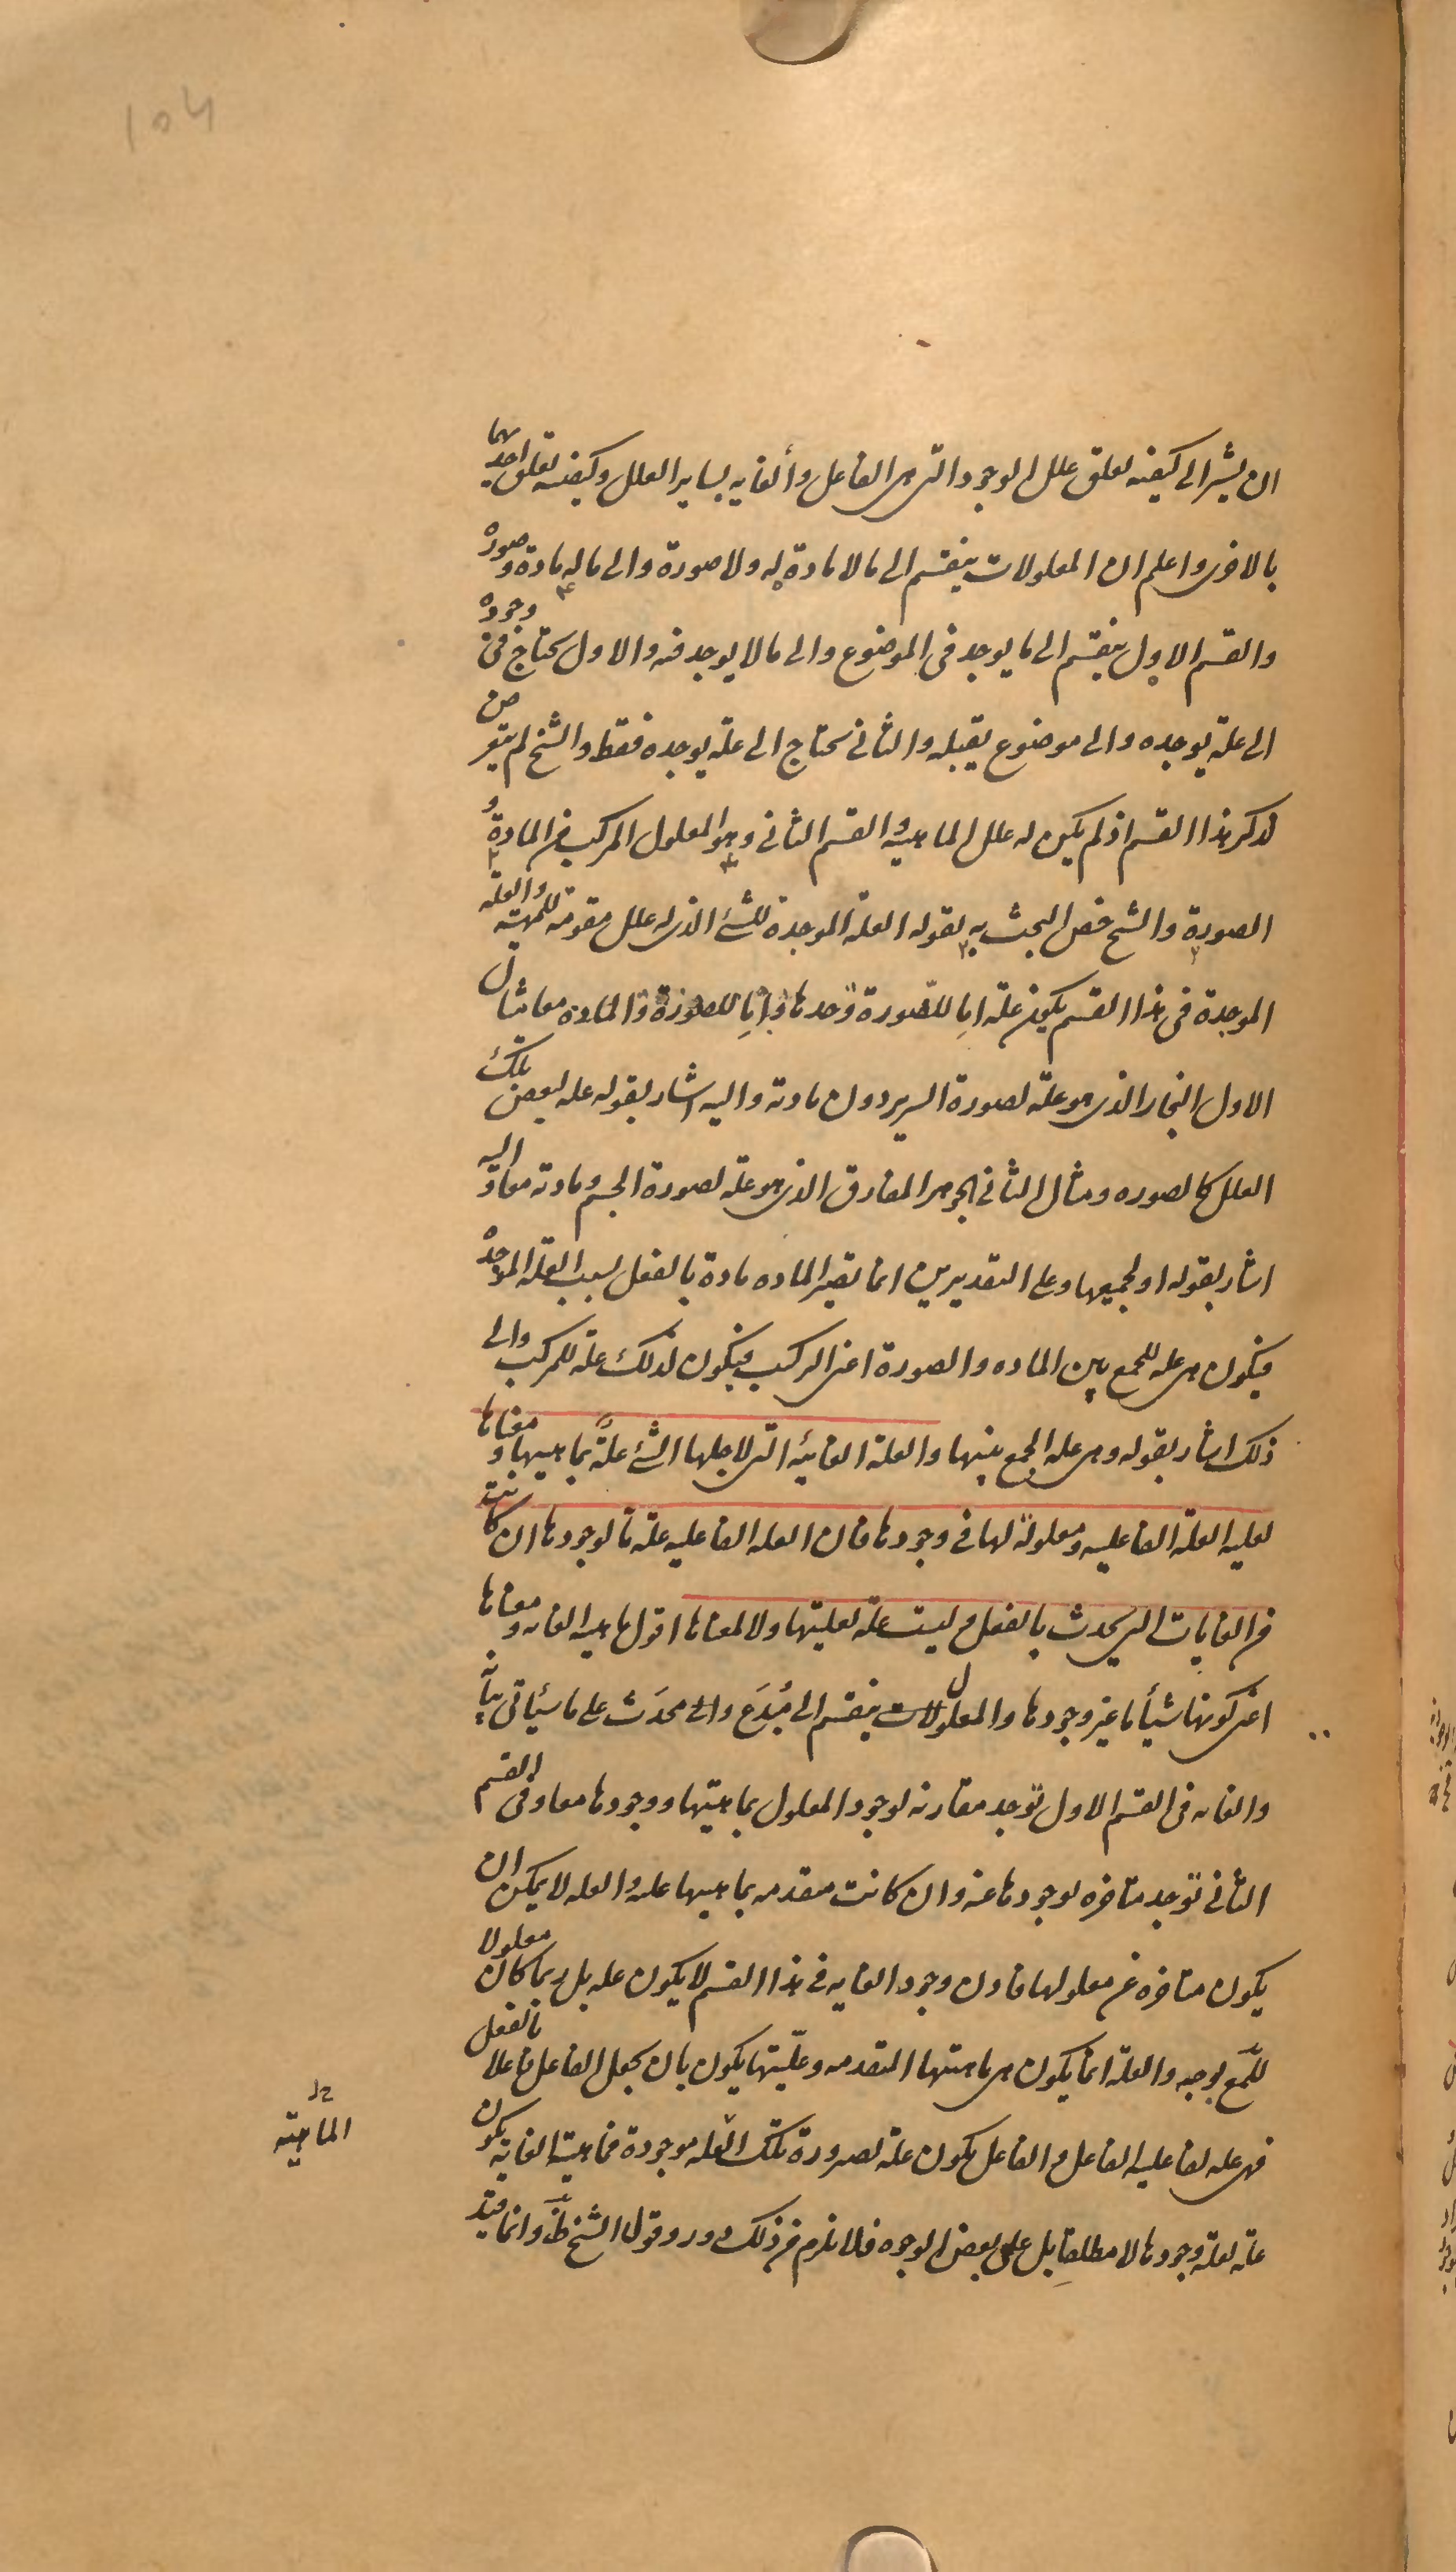 ۱۵۴
ان يشير الى كيفية تعلق علل الوجود التى هى الفاعل والغايه بساير العلل وكيفية تعلق احديهما
بالاخرى واعلم ان المعلولات ينقسم الى ما لا مادة له ولا صورة والى ما له مادة وصورة
والقسم الاول ينقسم الى ما يوجد فى الموضوع والى ما لا يوجد فيه والاول يحتاج فى وجوده
الى علة يوجده والى موضوع يقبله والثانى يحتاج الى علة يوجده فقط والشيخ لم يتعرض
لذكر هذا القسم اذ لم يكن له علل الماهيه والقسم الثانى وهو المعلول المركب من المادة و
الصورة والشيخ خص البحث به بقوله العلة الموجدة للشئ الذى له علل مقومة للمهية والعلة
الموجدة فى هذا القسم يكون علة اما للصورة وحدها واما للصورة والمادة معا مثال
الاول النجار الذى هو علة لصورة السرير دون مادته واليه اشار بقوله علة لبعض تلك
العلل كالصوره ومثال الثانى الجوهر المفارق الذى هو علة لصورة الجسم ومادته معا واليه
اشار بقوله او لجميعها وعلى التقديرين انما تصير الماده مادة بالفعل بسبب العلة الموجدة
فيكون هى علة للجمع بين الماده والصورة اعنى التركيب فيكون لذلك علة للمركب والى
ذلك اشار بقوله وهى علة الجمع بينها والعلة الغائية التى لاجلها الشئ علةٌ بماهيتها ومعناها
لعلية العلة الفاعلية ومعلولة لها فى وجودها فان العلة الفاعلية علة ما لوجودها ان كانت
من الغايات التى يحدث بالفعل وليست علة لعليتها ولا لمعناها اقول ماهية الغاية ومعناها
اعنى كونها شيأ ما غير وجودها والمعلولات ينقسم الى مُبدَع والى محدَث على ما سيأتى بيانه
والغاية فى القسم الاول توجد مقارنة لوجود المعلول بماهيتها ووجودها معا وفى القسم
الثانى توجد متاخرة بوجودها عنه وان كانت متقدمه بماهيتها عليه والعلة لا يمكن ان
يكون متاخرة عن معلولها فاذن وجود الغاية فى هذا القسم لا يكون علة بل ربما كان معلولا
للمع بوجه والعلة انما يكون هى ماهيتها المتقدمه وعلّيتها يكون بان يجعل الفاعل فاعلا بالفعل
فهى علة لفاعلية الفاعل والفاعل يكون علة لصيرورة تلك العلة موجودة فماهية الغاية يكون
علة لعلة وجودها لا مطلقا بل على بعض الوجوه فلا يلزم من ذلك دور وقول الشيخ ظ وانما قيد
الماهية